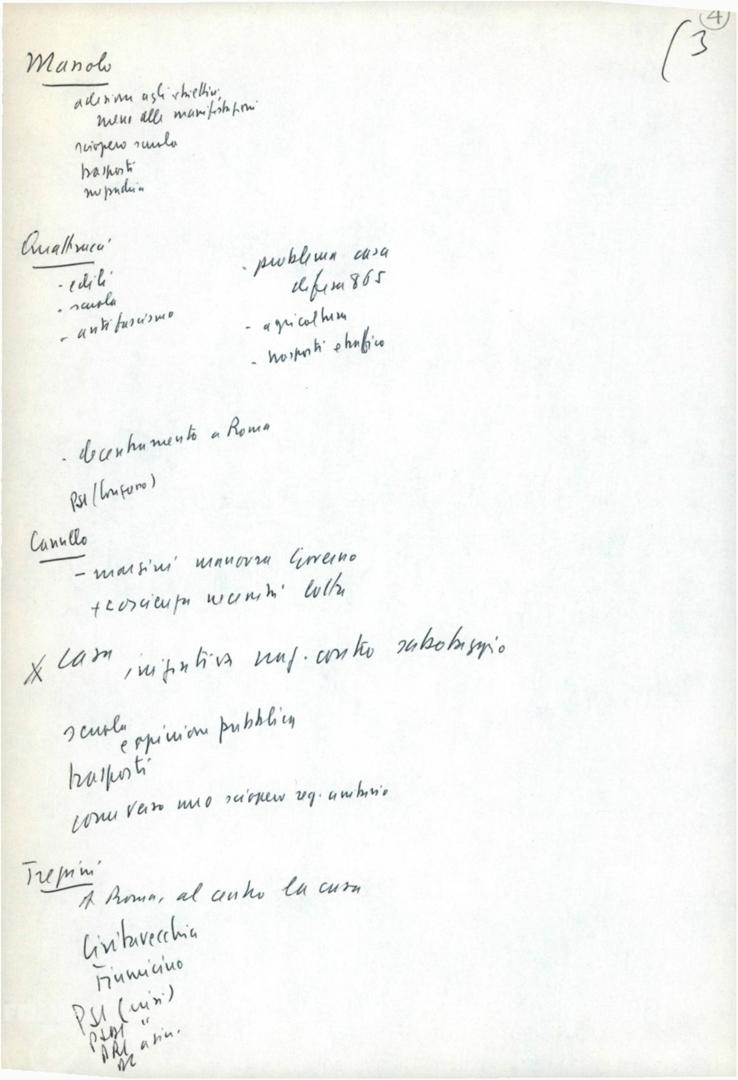 4
(3
Manolo
adesione agli obiettivi,
meno alle manifestazioni
sciopero scuola
trasporti
Quattrucci
- edili
- scuola
- antifascismo
- problema casa
difesa 865
- agricoltura
- trasporti e traffico
- decentramento a Roma
PSI (
Canullo
- margini manovra Governo
+ coscienza necessità lotta
X casa iniziativa contro sabotaggio
scuola
e opinione pubblica
trasporti
come verso uno sciopero reg. unitario
Trezzini
A Roma, al centro la casa
Civitavecchia
Fiumicino
PSI (
PSDI "
PRI
DC